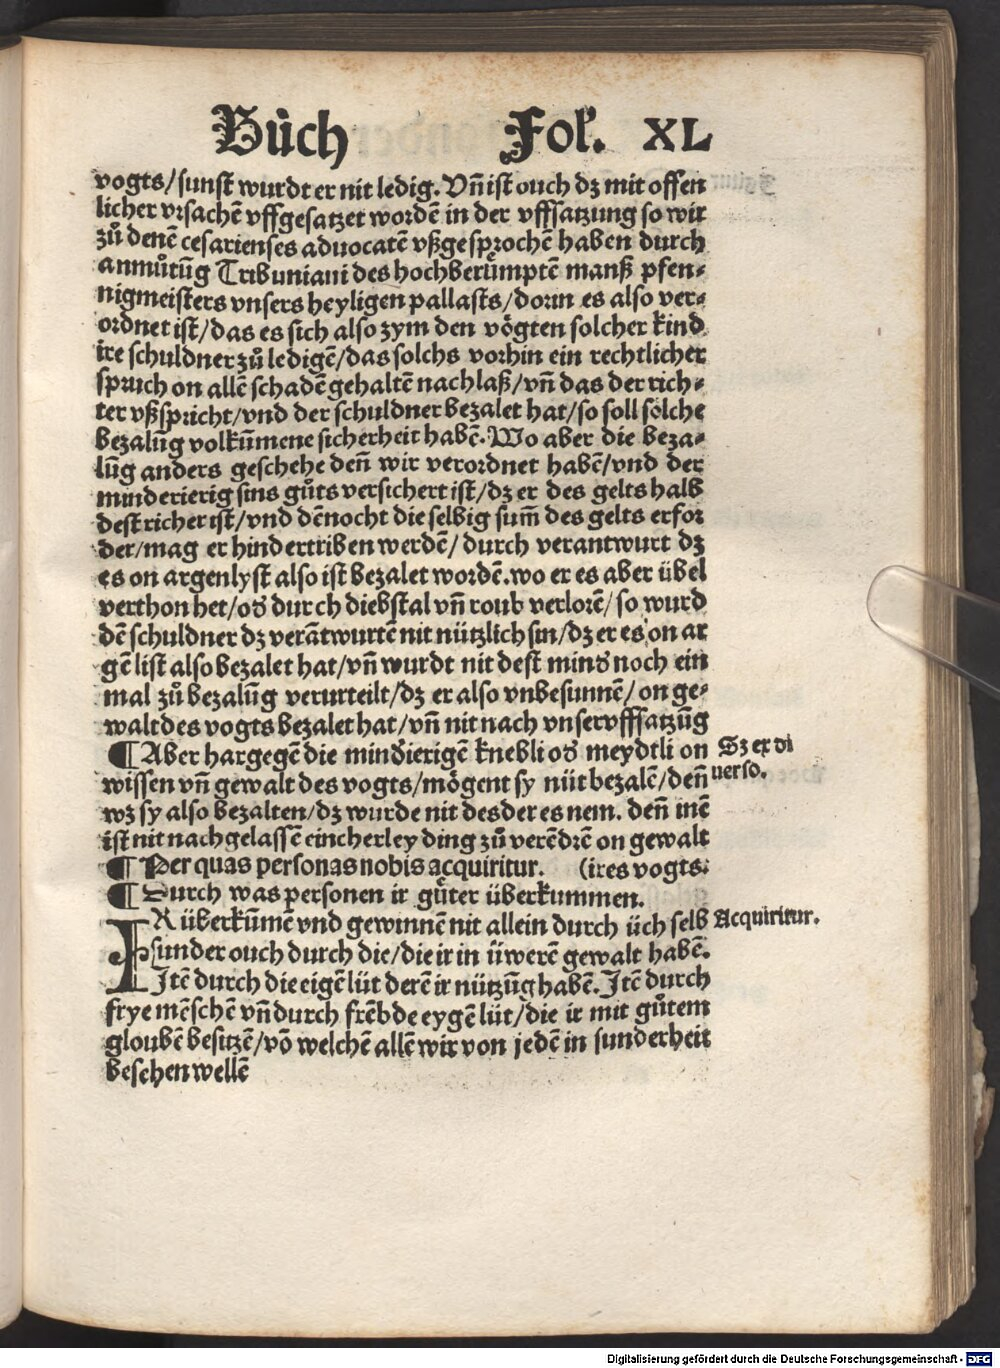 Bůch Fol. XL
vogts/sunst wurdt er nit ledig. Vñ ist ouch dz mit offen
licher vrsachē vffgesatzet wordē in der vffsatzung so wir
zů denē cesarienses aduocatē vßgesprochē haben durch
anmůtūg Tribuniani des hochberůmptē manß pfen⸗
nigmeisters vnsers heyligen pallasts/dorin es also ver⸗
ordnet ist/das es sich also zym den vögten solcher kind
ire schuldner zů ledigē/das solchs vorhin ein rechtlicher
spruch on allē schadē gehaltē nachlaß/vñ das der rich⸗
ter vßspricht/vnd der schuldner bezalet hat/so soll sölche
bezalūg volkūmene sicherheit habē. Wo aber die beza⸗
lūg anders geschehe deñ wir verordnet habē/vnd der
minderierig sins gůts versichert ist/dz er des gelts halb
dest richer ist/vnd dēnocht die selbig sum̄ des gelts erfor
der/mag er hindertriben werdē/ durch verantwurt dz
es on argenlyst also ist bezalet wordē. wo er es aber übel
verthon het/od̕ durch diebstal vñ roub verlorē/ so wurd
dē schuldner dz verātwurtē nit nützlich sin/dz er es on ar
gē list also bezalet hat/vñ wurdt nit dest mind̕ noch ein
mal zů bezalūg verurteilt/dz er also vnbesunnē/ on ge⸗
walt des vogts bezalet hat/vñ nit nach vnser vffsatzūg
¶ Aber hargegē die mind̕ierigē knebli od̕ meydtli on
Sz ex di
wissen vñ gewalt des vogts/mögent sy nüt bezalē/deñ
uerso.
wz sy also bezalten/dz wurde nit des der es nem. deñ inē
ist nit nachgelassē eincherley ding zů verēdrē on gewalt
¶ Per quas personas nobis acquiritur. (ires vogts.
¶ Durch was personen ir gůter überkummen.
IR überkūmē vnd gewinnē nit allein durch üch selb
Acquiritur.
sunder ouch durch die/die ir in üwerē gewalt habē.
Itē durch die eigē lüt derē ir nützūg habē. Itē durch
frye mēschē vñ durch frēbde eygē lüt/die ir mit gůtem
gloubē besitzē/vō welchē allē wir von jedē in sunderheit
besehen wellē
Digitalisierung gefördert durch die Deutsche Forschungsgemeinschaft - DFG